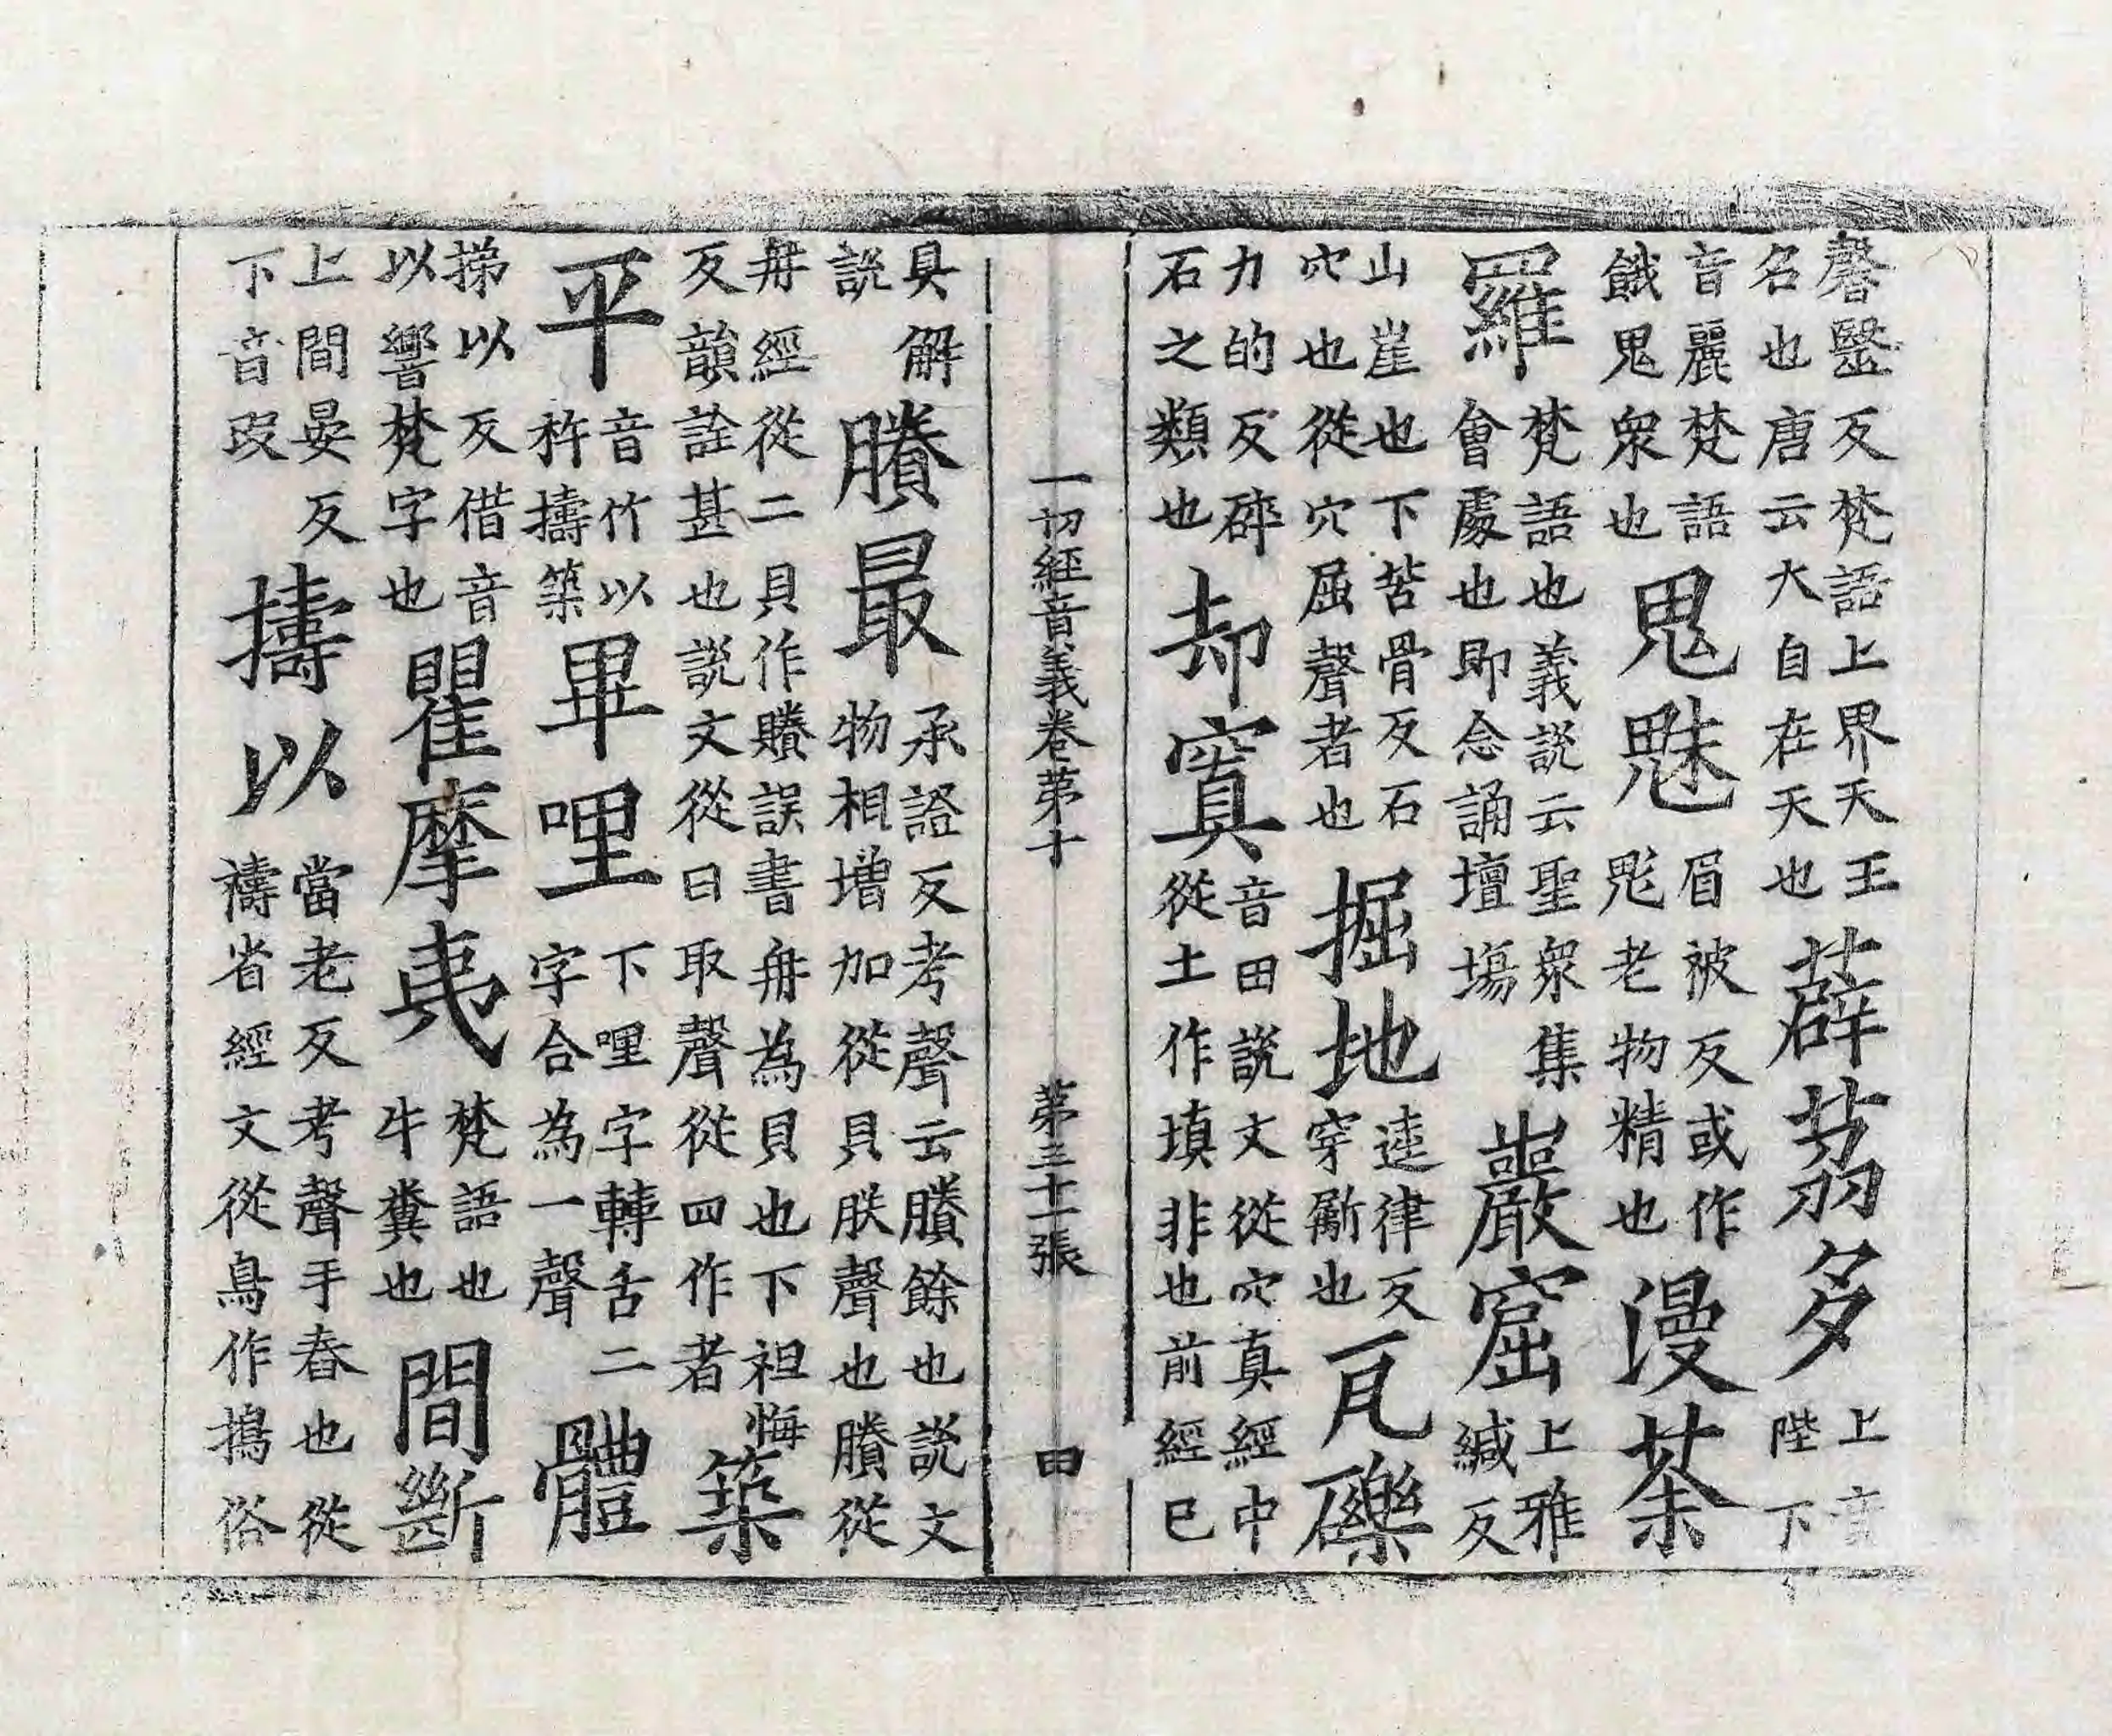 馨醫反梵語上界天王名也唐云大自在天也薜荔多上音陛下
音麗梵語餓鬼衆也鬼魅眉被反或作鬽老物精也漫荼
羅梵語也義説云聖衆集會處也即念誦壇場巖窟上雅緘反
山崖也下苦骨反石穴也從穴屈聲者也掘地逵律反穿斸也瓦礫
力的反碎石之類也却窴音田説文從穴真經中從土作填非也前經已
一切經音義卷第十 第三十一張 田
具解説賸最承證反考聲云賸餘也説文物相增加從貝朕聲也賸從
舟經從二貝作誤書舟為貝也下祖悔反韻詮甚也説文從曰取聲從四作者築
平音竹以杵擣築畢哩下哩字轉舌二字合為一聲體
挮以反借音以響梵字也瞿摩夷梵語也牛糞也間斷
上間晏反下音段擣以當老反考聲手舂也從禱省經文從鳥作搗俗